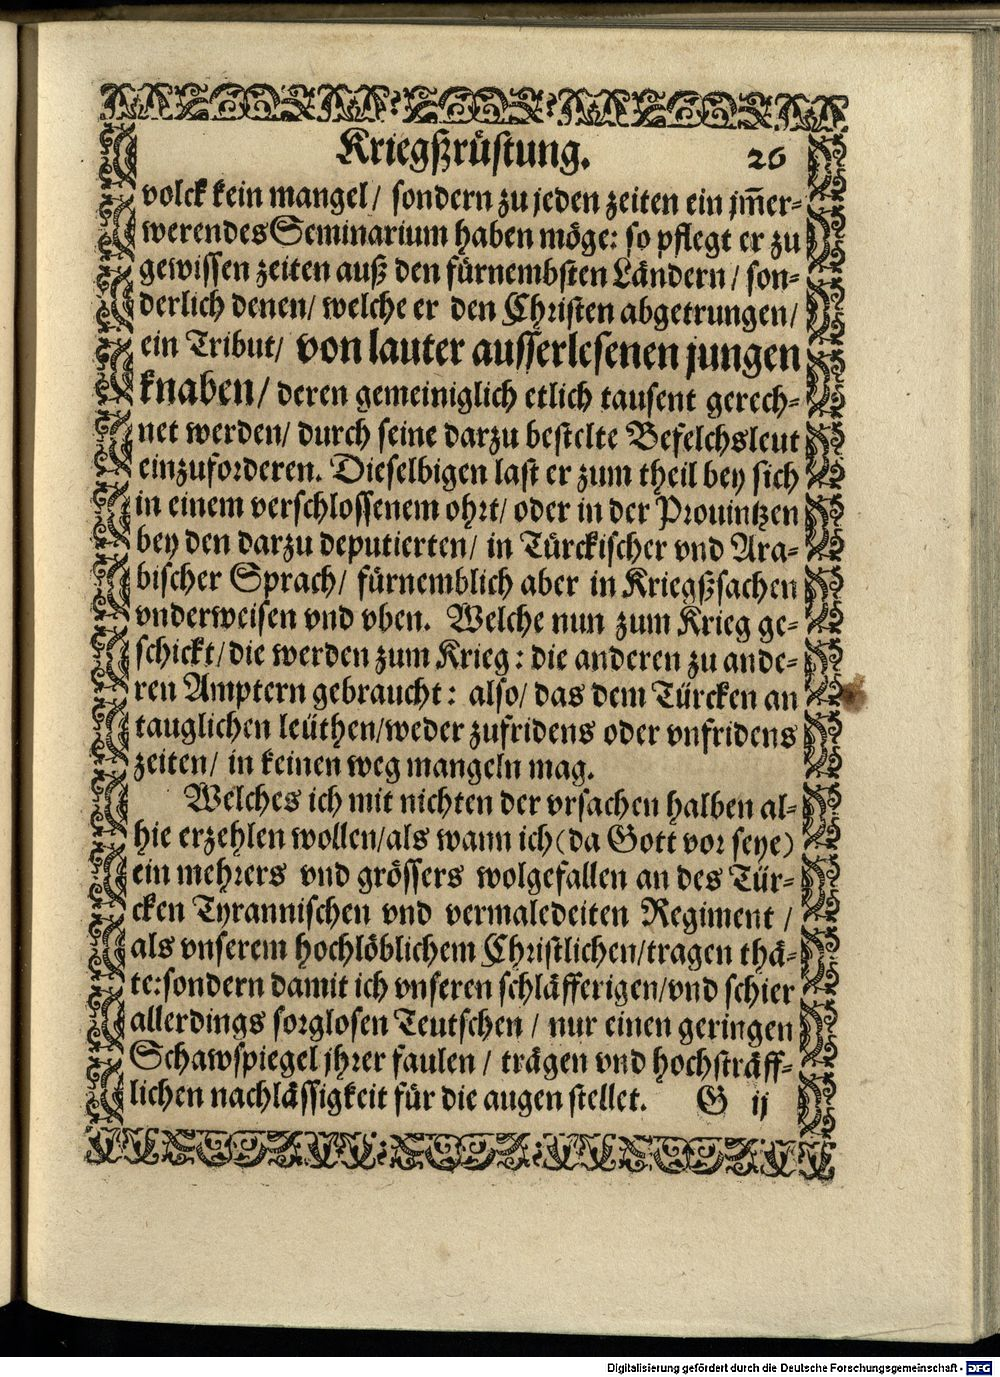 Kriegßrüstung. 26
volck kein mangel/ sondern zu jeden zeiten ein jm̃er-
werendes Seminarium haben möge: so pflegt er zu
gewissen zeiten auß den fürnembsten Ländern/ son-
derlich denen/ welche er den Christen abgetrungen/
ein Tribut/ von lauter ausserlesenen jungen
knaben/ deren gemeiniglich etlich tausent gerech-
net werden/ durch seine darzu bestelte Befelchsleut
einzuforderen. Dieselbigen last er zum theil bey sich
in einem verschlossenem ohrt/ oder in der Prouintzen
bey den darzu deputierten/ in Türckischer vnd Ara-
bischer Sprach/ fürnemblich aber in Kriegßsachen
vnderweisen vnd vben. Welche nun zum Krieg ge-
schickt/ die werden zum Krieg: die anderen zu ande-
ren Amptern gebraucht: also/ das dem Türcken an
tauglichen leüthen/ weder zufridens oder vnfridens
zeiten/ in keinen weg mangeln mag.
Welches ich mit nichten der vrsachen halben al-
hie erzehlen wollen/ als wann ich (da Gott vor seye)
ein mehrers vnd grössers wolgefallen an des Tür-
cken Tyrannischen vnd vermaledeiten Regiment /
als vnserem hochlöblichem Christlichen/ tragen thä-
te: sondern damit ich vnseren schläfferigen/ vnd schier
allerdings sorglosen Teutschen / nur einen geringen
Schawspiegel jhrer faulen / trägen vnd hochsträff-
lichen nachlässigkeit für die augen stellet. G ij
Digitalisierung gefördert durch die Deutsche Forschungsgemeinschaft - DFG